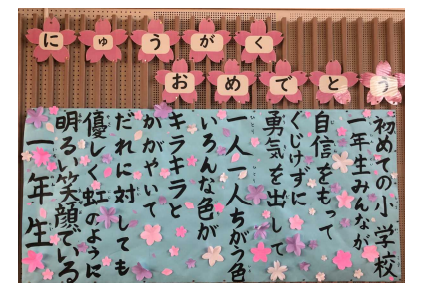 にゅうがく
おめでとう
初めての小学校
一年生みんなが
自信をもって
くじけずに
勇気を出して
一人一人ちがう色
いろんな色が
キラキラと
かがやいて
だれに対しても
優しく虹のように
明るい笑顔でいる
一年生